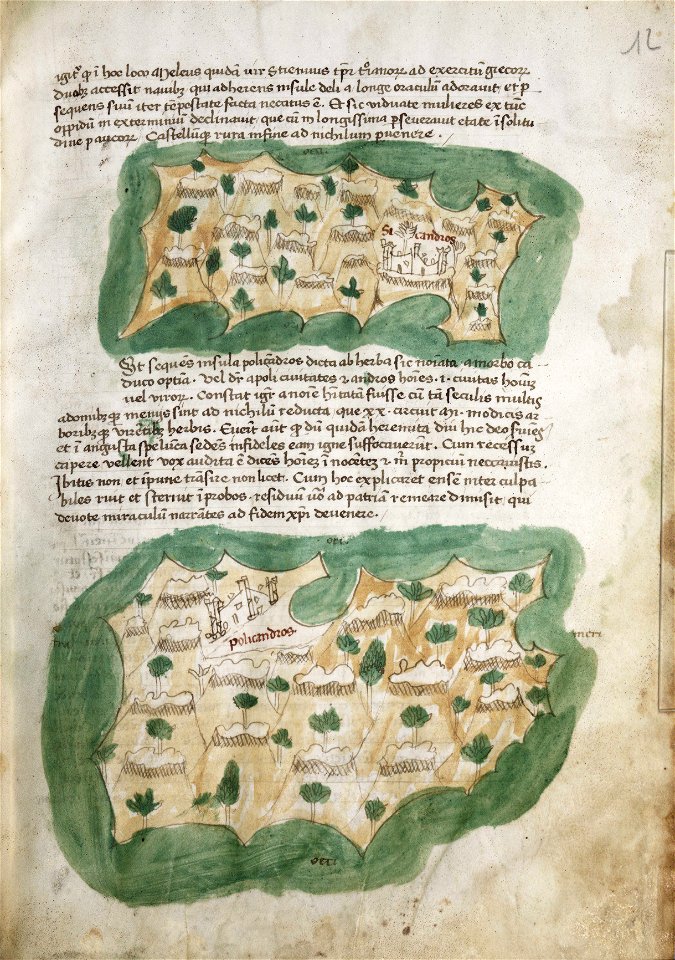 12
igit̉ q̨ ĩ hoc loco Meleus quidã vir strenuus tp̃r troianorꝝ ad exercitũ grecorꝝ
duabꝫ accessit navibꝫ qui adherens insule deli a longe oraculũ adoravit et p
sequens suuʒ iter tẽpestate facta necatus ẽ. Et sic viduate mulieres ex tũc
oppidũ in exterminiũ declinavit que cũ in longissima pseveravit etate ĩ solitu
dine paucorꝝ Castellũqꝫ rura ĩn fine ad nichilum pvenere.
Sicandros
Et sequẽs insula policãdros dicta ab herba sic noĩata a morbo ca
duco optĩa. Vel dr̃ a poli civitates & andros hoĩes .i. civitas hoĩuʒ
vel viroꝝ. Constat igr̃ a noĩe hĩtatã fuisse cũ tã seculis multis
a domibꝫqꝫ meniis sint ad nichilũ reducta, que xx. circuit m̃. modicis ar
boribꝫqꝫ virẽtibꝫ herbis. Evẽit aũt q̨ dũ quidã heremita diu hic deo suieʒ
et ĩ angusta speluca sedẽs infideles eam igne suffocaverũt. Cum recessuʒ
capere vellent vox audita ẽ dicẽs hoĩeʒ ĩnocẽteʒ & m̃ propiciũ neccavistis.
Ibitis non et ĩpune trãsire non licet. Cum hoc explicaret ense inter culpa
biles ruit et sternit ĩprobos. residuũ v̉o ad patriã remeare dimisit, qui
devote miraculũ narrãtes ad fidem xp̃i devenere.
Policandros
meri